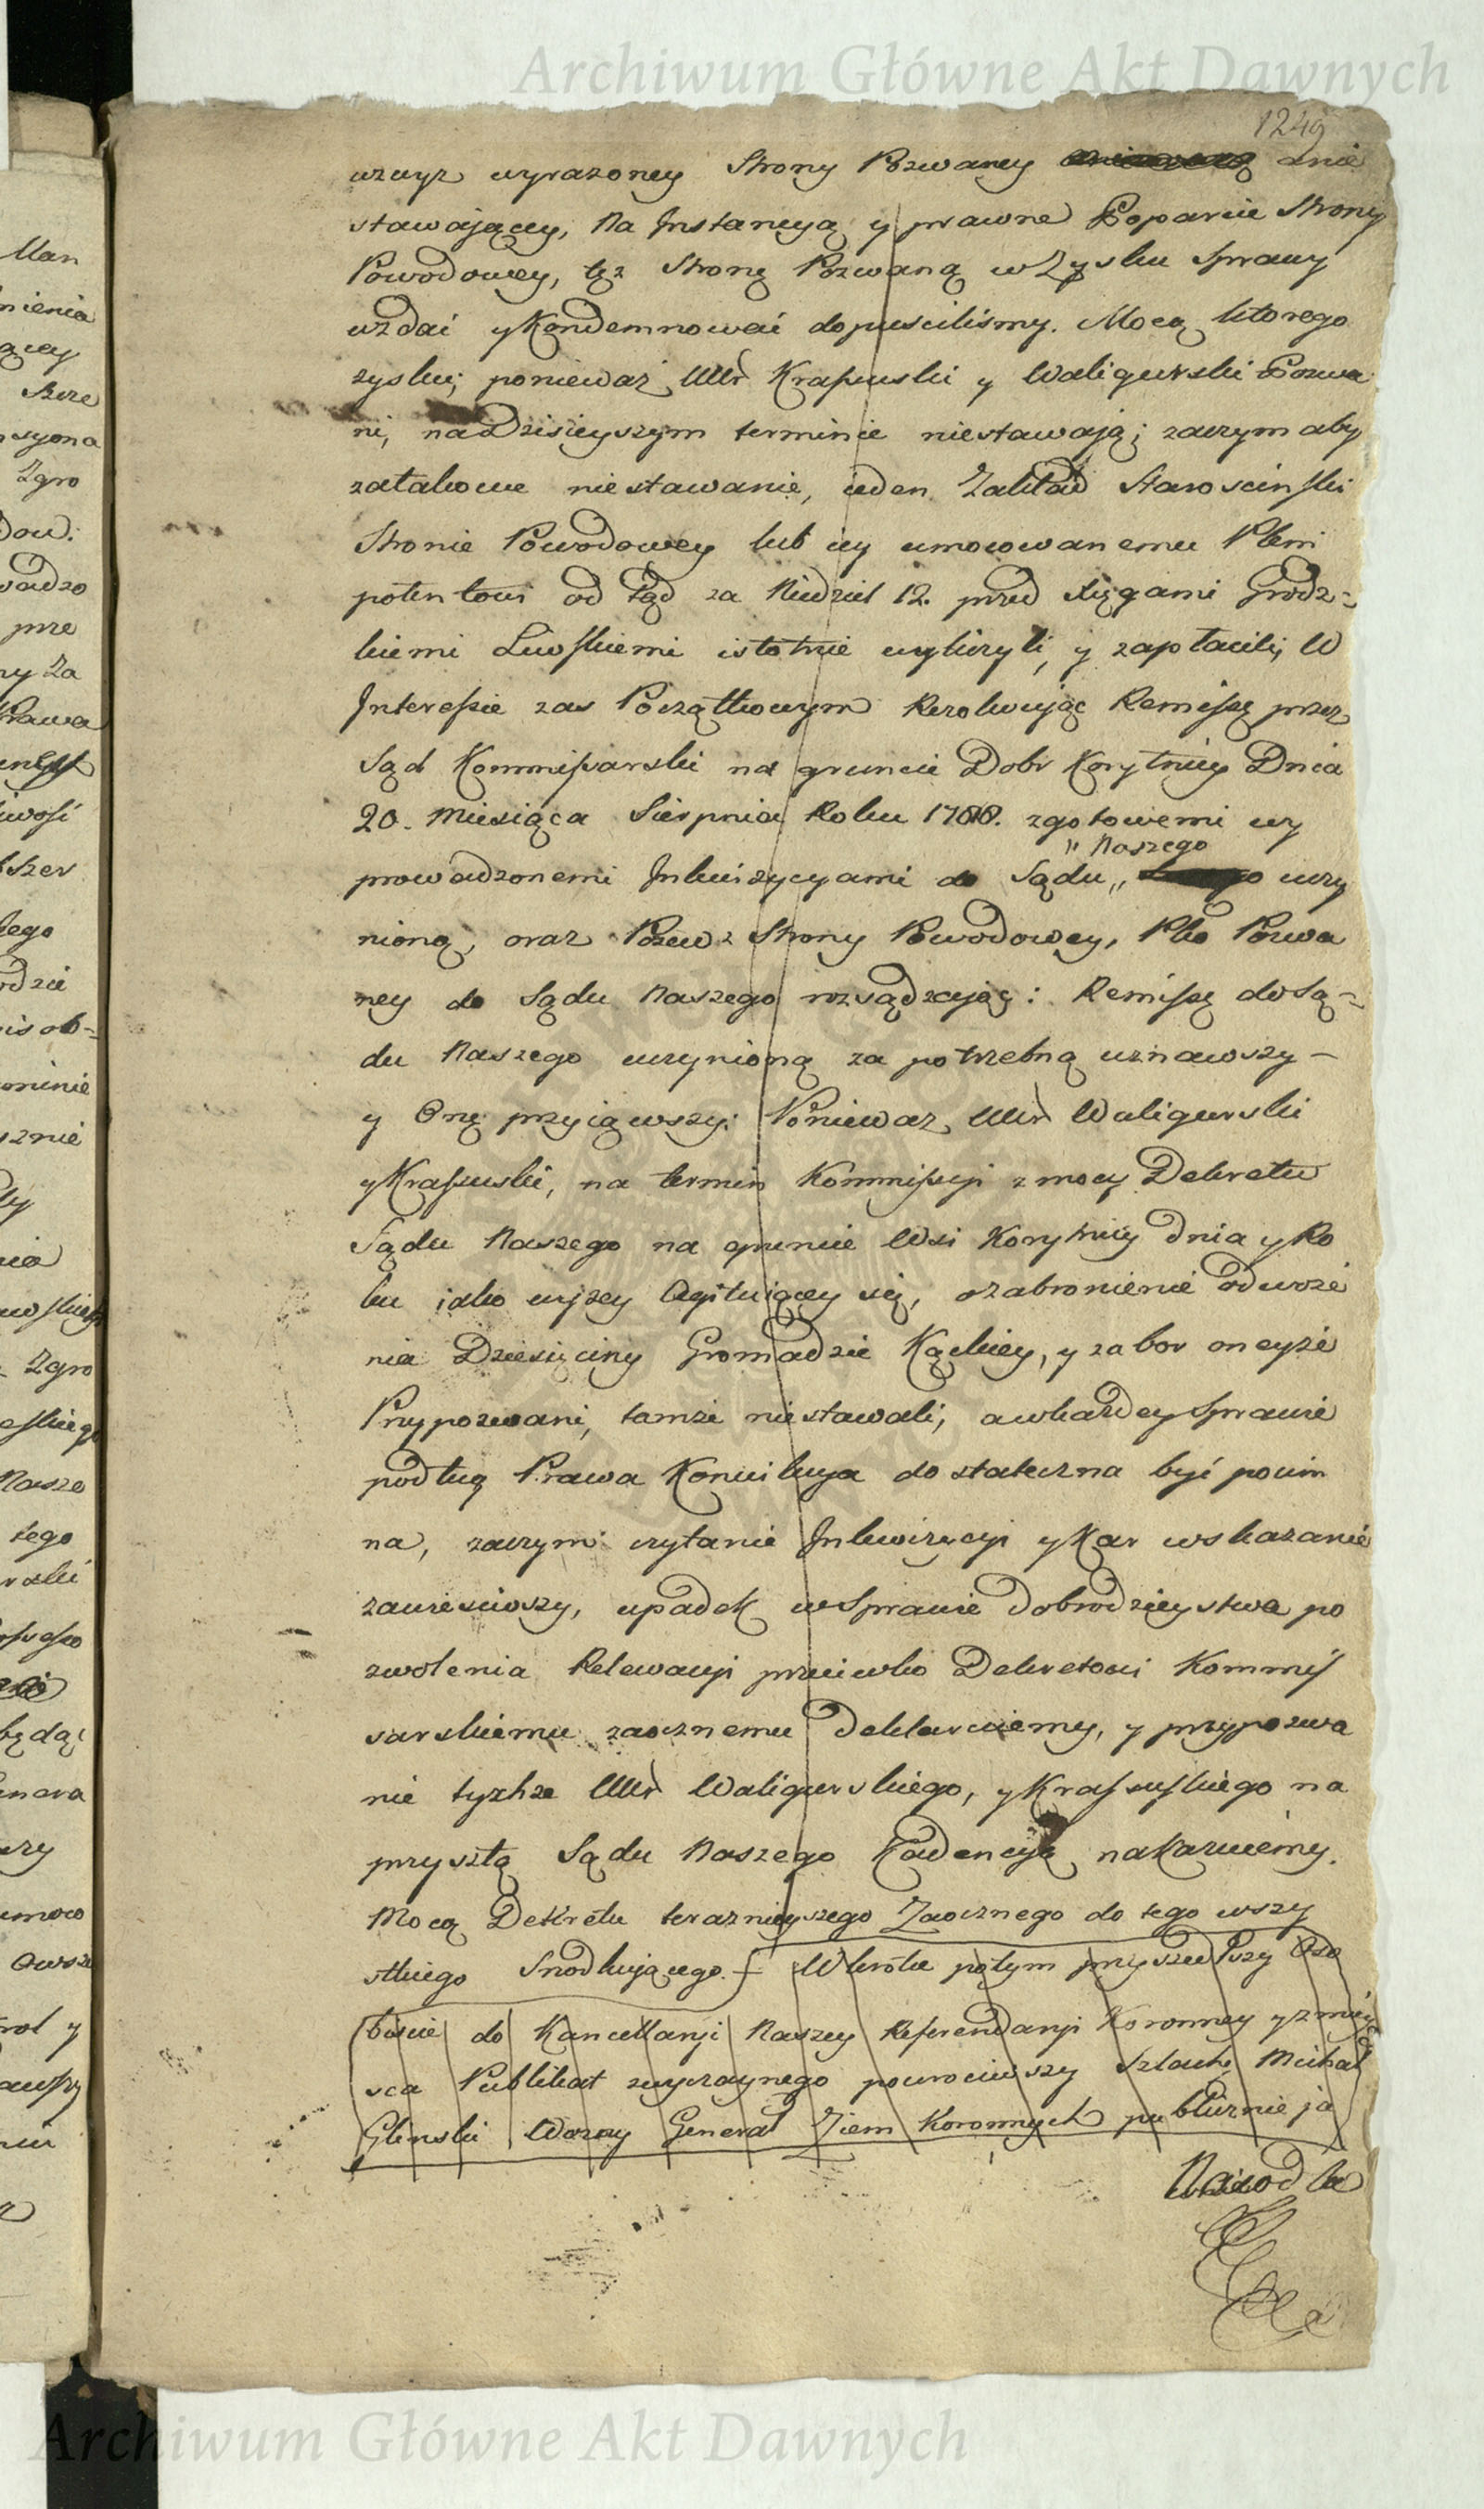 Archiwum Główne Akt Dawnych
1249
wzwyz wyrazoney Strony Pozwaney anie
stawaiącey, Na Instancyą y prawne Poparcie Strony
Powodowey, tęż Stronę Pozwaną w Zysku Sprawy
wzdać y Kondemnować dopuscilismy. Mocą ktorego
zysku; ponieważ Urr Krassuski y Waligurski Pozwa
ni, na Dzisieyszym terminie niestawają; zaczym aby
zatakowe niestawanie, ieden Zakład Starosciński
Stronie Powodowey lub iey umocowanemu Pleni
potentowi od tąd za Niedziel 12. przed xięgami Grodz-
kiemi Liwskiemi istotnie wyliczyli, y zapłacili; W
Interessie zas Początkowym Rezolwując Remissę przez
Sąd Kommissarski na gruncie Dobr Korytnicy Dnia
20. Miesiąca Sierpnia Roku 1788. zgotowemi wy
" Naszego
prowadzonemi Inkwizycyami do Sądu " uczy
nioną, oraz Pozew z Strony Powodowey, Pko Pozwa
ney do Sądu Naszego rozsądzając: Remissę do Są-
du Naszego uczynioną za potrzebną uznawszy -
y Onę przyiąwszy: Ponieważ Urr Waligurski
y Krassuski, na termin Kommissyi z mocy Dekretu
Sądu Naszego na gruncie Wsi Korytnicy dnia y Ro
ku iako wyzey Agituiącey się, o zabronienie odwoże
nia Dziesięciny Gromadzie Kąckiey, y zabor oneyże
Przypozwani, tamże niestawali, a w każdey Sprawie
podług Prawa Konwikcya dostateczna być powin
na, zaczym czytanie Inkwizycyi y Kar wskazanie
zawiesiwszy, upadek w Sprawie dobrodzieystwa po
zwolenia Relewacyi przeciwko Dekretowi Kommis
sarskiemu zaocznemu deklaruiemy, y przypozwa
nie tychże Urr Waligurskiego, y Krassuskiego na
przyszłą Sądu Naszego Kadencyę nakazuiemy.
Mocą Dekretu teraznieyszego Zaocznego do tego wszy
stkiego Srzodkującego. Wkrotce potym przyszedłszy Oso
biscie do Kancellaryi Naszey Referendaryi Koronney y z miey
sca Publikat zwyczaynego powrociwszy Szlachę Michał
Glinski Wozny Generał Ziem Koronnych publicznie ja
Archiwum Główne Akt Dawnych